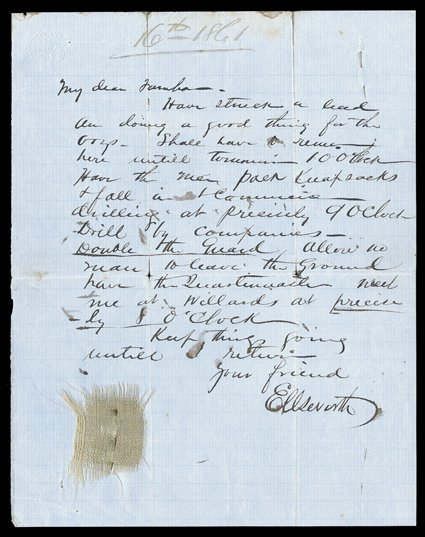 16th 1861
My dear Farnham -
Have struck a lead
am doing a good thing for the
boys - Shall have to remain
here untill tomorrow 10 O'Clock
Have the men pack Knapsacks
& fall in & Commence
drilling at precisely 9 O'Clock
Drill by companies -
Double the Guard allow no
man to leave the Ground
have the Quartermaster meet
me at Willards at precise
-ly 8 O'Clock
Keep thing going
untill I return
Your friend
Ellsworth